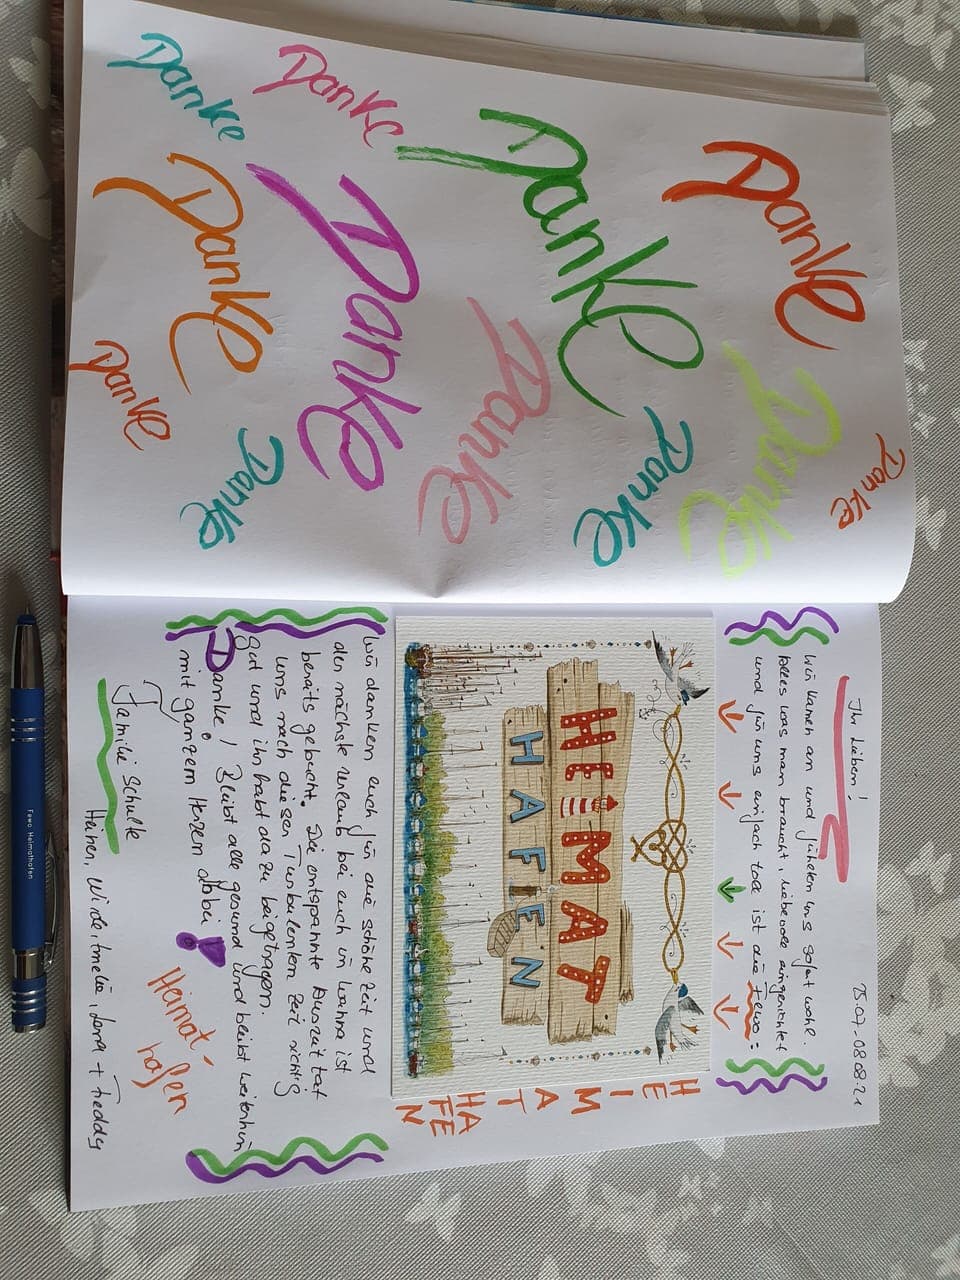 Danke
Danke
Danke
Danke
Danke
Danke
Danke
Danke
Danke
Danke
Danke
Danke
25.07.-08.08.21
Ihr Lieben!
Wir kamen an und fühlten uns sofort wohl.
Alles was man braucht, liebevoll eingerichtet
und für uns einfach toll ist die Fewo:
HEIMAT
HAFEN
HEIMAT
HAFEN
Wir danken euch für die schöne Zeit und
der nächste Urlaub bei euch in
bereits gebucht. Die entspannte Auszeit tat
uns nach dieser turbulenten Zeit richtig
gut und ihr habt dazu beigetragen.
Danke! Bleibt alle gesund und bleibt weiterhin
mit ganzem Herzen dabei!
Heimat-
hafen
Familie Schulte
+ Freddy
Fewo Heimathafen